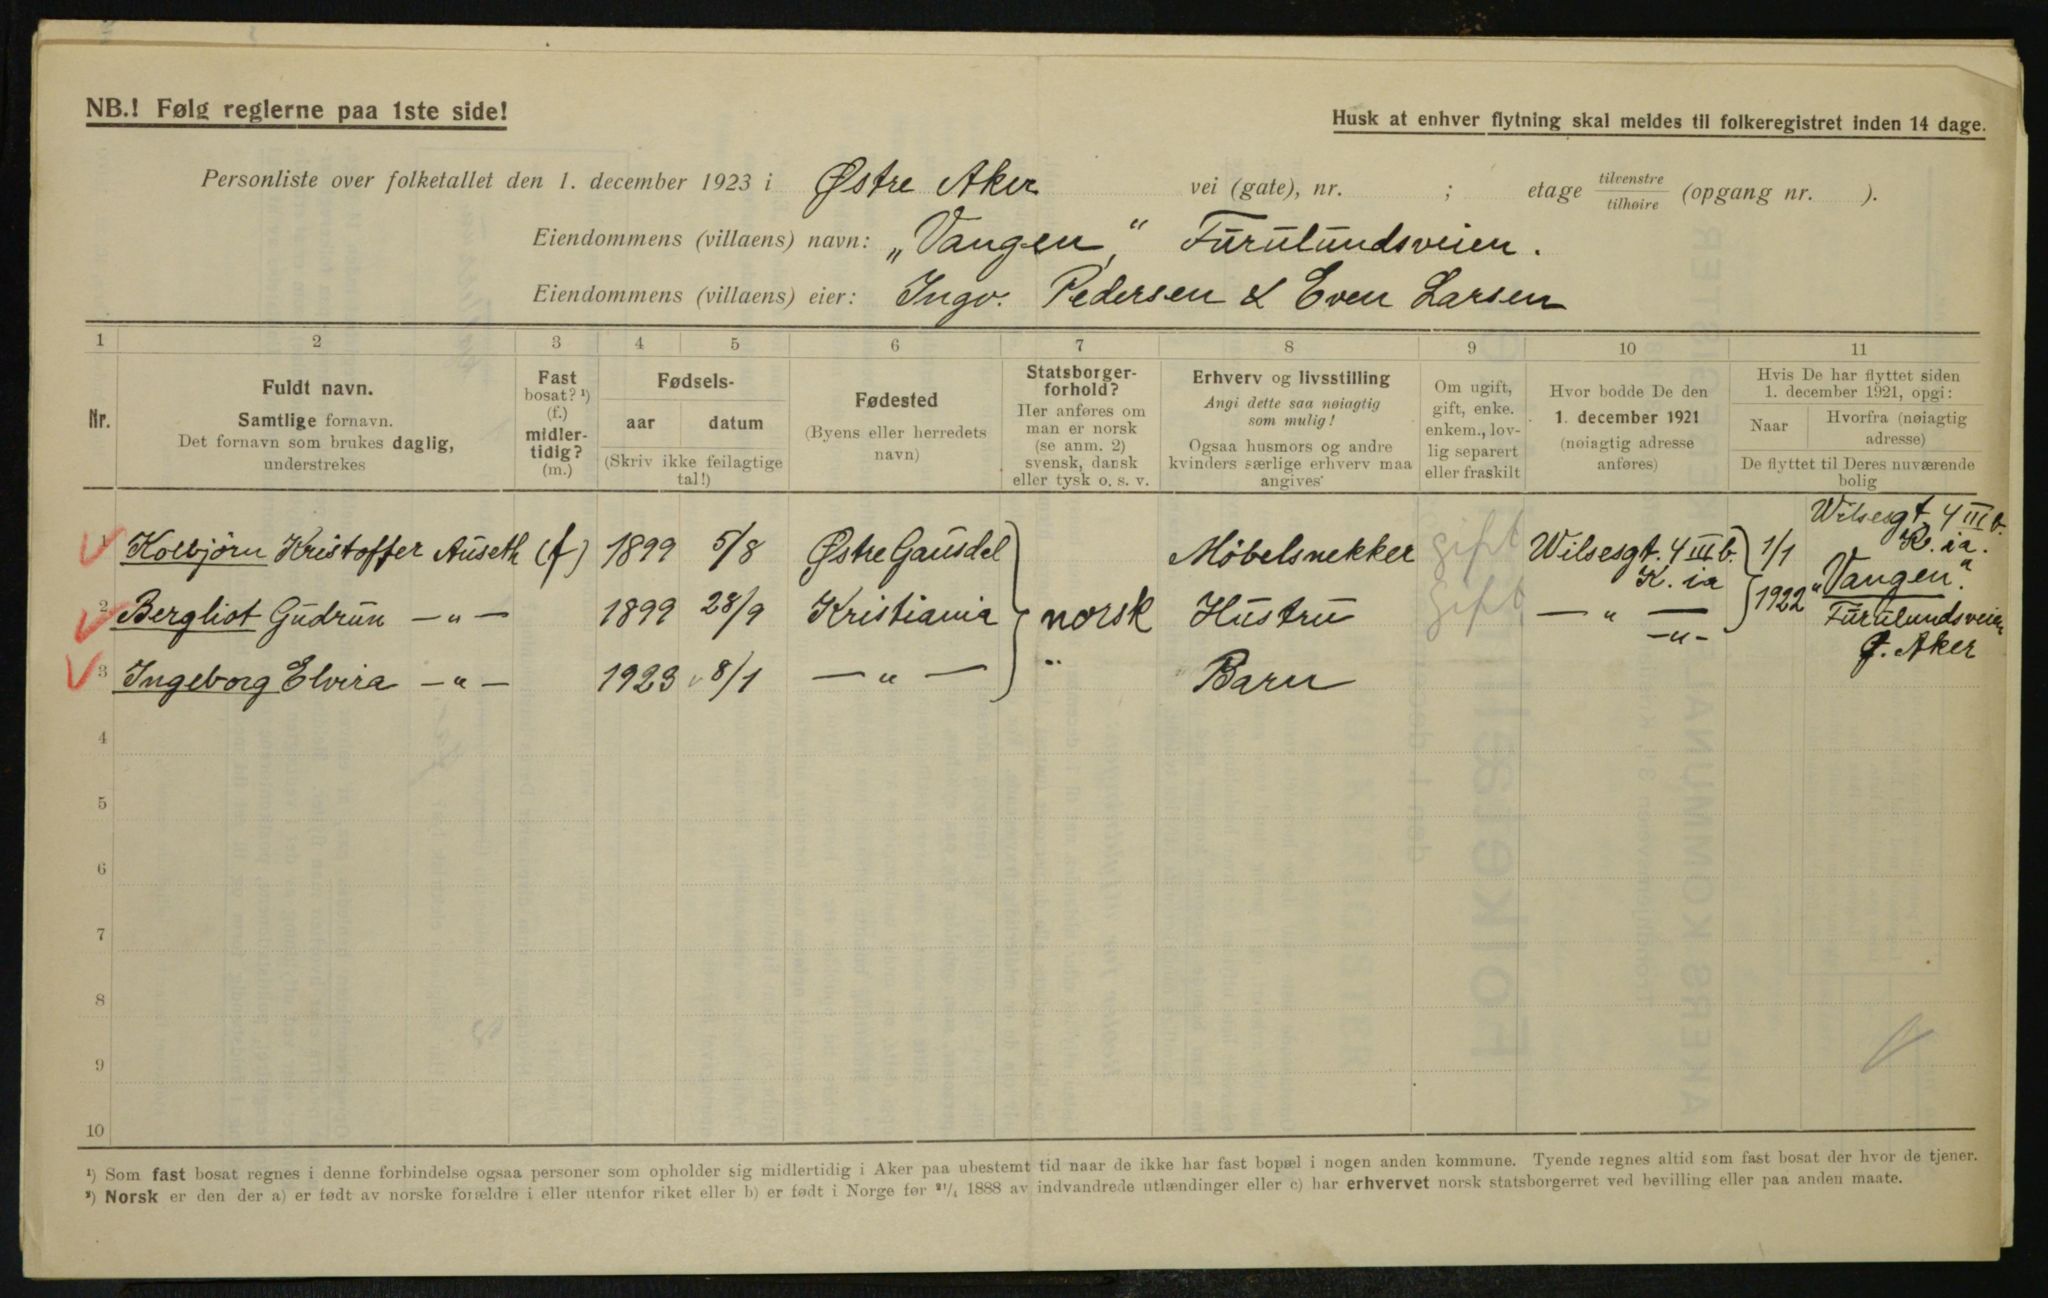 NB.! Følg reglerne paa 1ste side!
Husk at enhver flytning skal meldes til folkeregistret inden 14 dage.
Personliste over folketallet den 1. december 1923 i Østre Aker vei (gate), nr. ; etage tilvenstre/tilhøire (opgang nr. ).
Eiendommens (villaens) navn: „Vangen“ Furulundsveien.
Eiendommens (villaens) eier: Ingv. Pedersen & Even Larsen
1 2 3 4 5 6 7 8 9 10 11
Nr.
Fuldt navn.
Samtlige fornavn.
Det fornavn som brukes daglig,
understrekes
Fast
bosat? ¹)
(f.)
midler-
tidig?
(m.)
Fødsels-
aar datum
(Skriv ikke feilagtige
tal!)
Fødested
(Byens eller herredets
navn)
Statsborger-
forhold?
Her anføres om
man er norsk
(se anm. 2)
svensk, dansk
eller tysk o. s. v.
Erhverv og livsstilling
Angi dette saa nøiagtig
som mulig!
Ogsaa husmors og andre
kvinders særlige erhverv maa
angives
Om ugift,
gift, enke.
enkem., lov-
lig separert
eller fraskilt
Hvor bodde De den
1. december 1921
(nøiagtig adresse
anføres)
Hvis De har flyttet siden
1. december 1921, opgi:
Naar
Hvorfra (nøiagtig
adresse)
De flyttet til Deres nuværende
bolig
1 Kolbjörn Kristoffer Auseth (f) 1899 5/8 Østre Gausdel Möbelsnekker gift Wilsesgt. 4 III b. K. ia 1/1 Wilsesgt 4 III b. K. ia.
2 Bergliot Gudrun —„— 1899 28/9 Kristiania norsk Hustru gift —„— —„— 1922 „Vangen“. Furulundsveien Ø. Aker
3 Ingeborg Elvira —„— 1923 8/1 —„— „ Barn
4
5
6
7
8
9
10
¹) Som fast bosat regnes i denne forbindelse ogsaa personer som opholder sig midlertidig i Aker paa ubestemt tid naar de ikke har fast bopæl i nogen anden kommune. Tyende regnes altid som fast bosat der hvor de tjener.
²) Norsk er den der a) er født av norske forældre i eller utenfor riket eller b) er født i Norge før ²¹/₄ 1888 av indvandrede utlændinger eller c) har erhvervet norsk statsborgerret ved bevilling eller paa anden maate.